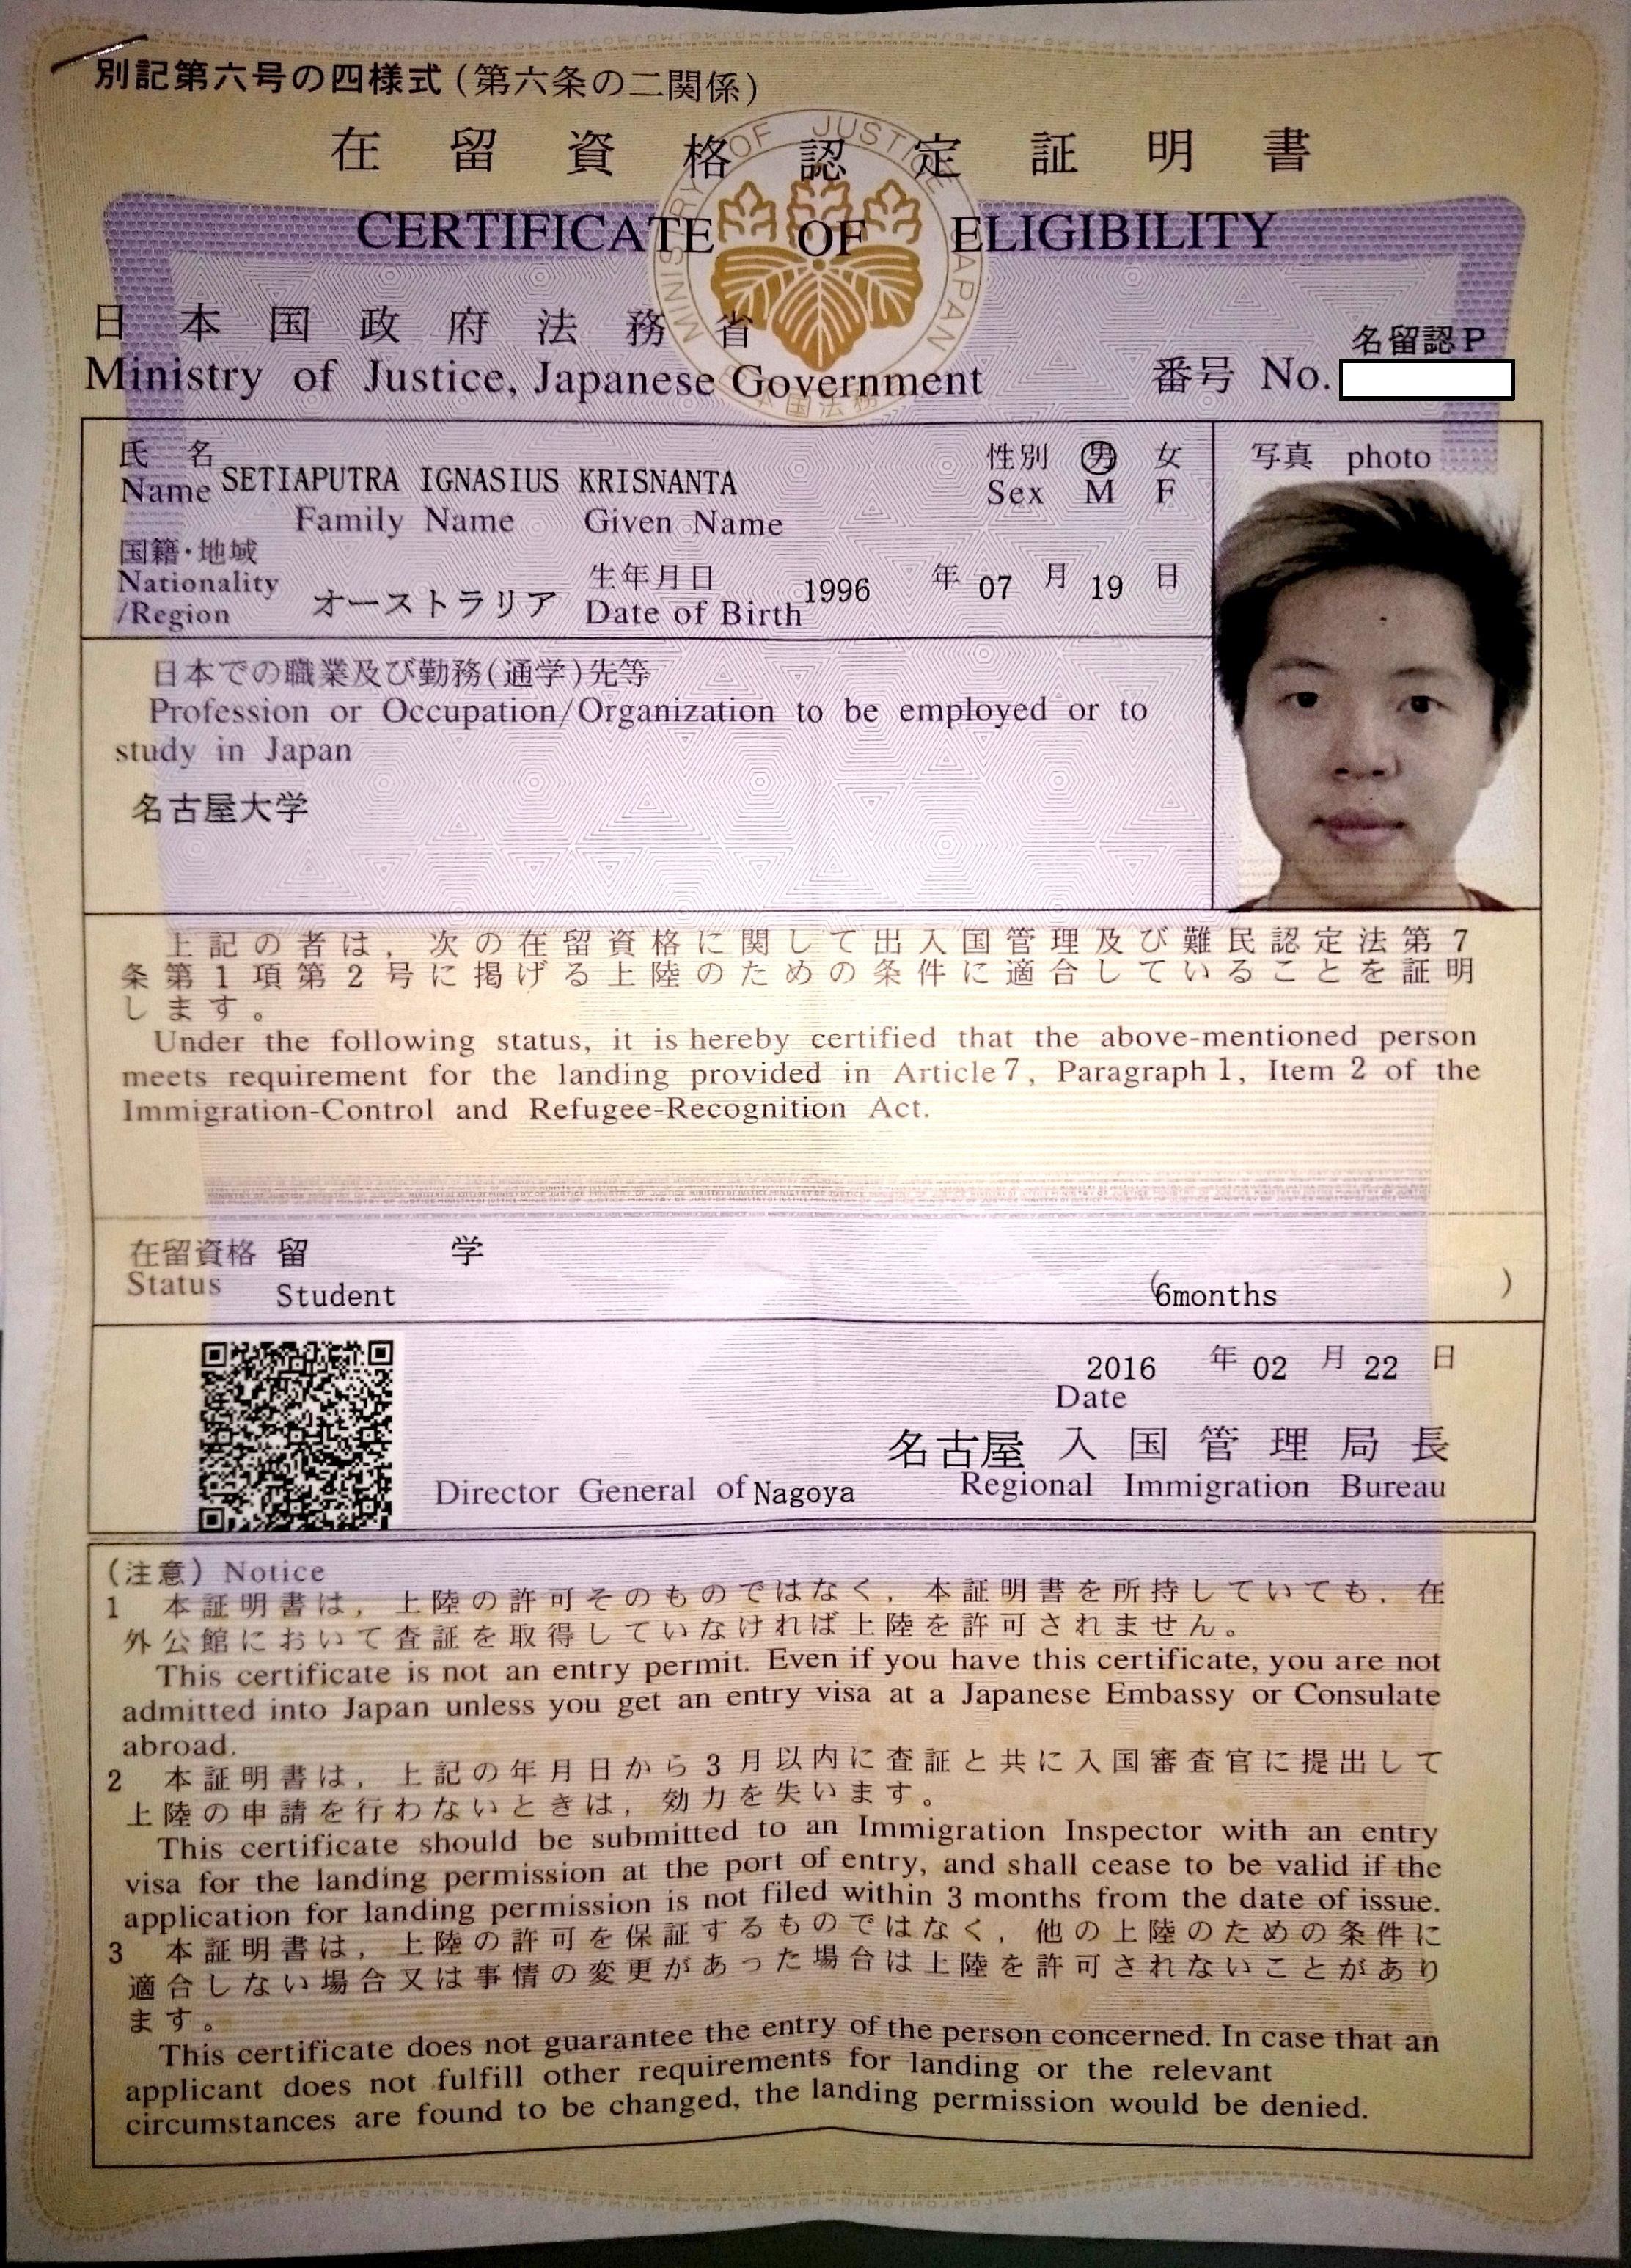 別記第六号の四様式(第六条の二関係)
在留資格認定証明書
CERTIFICATE OF ELIGIBILITY
MINISTRY OF JUSTICE JAPAN
日本国政府法務省
名留認P
Ministry of Justice, Japanese Government 番号 No.
氏名 SETIAPUTRA IGNASIUS KRISNANTA 性別 男 女 写真 photo
Name Sex M F
Family Name Given Name
国籍・地域
Nationality オーストラリア 生年月日 1996 年 07 月 19 日
/Region Date of Birth
日本での職業及び勤務(通学)先等
Profession or Occupation/Organization to be employed or to
study in Japan
名古屋大学
上記の者は,次の在留資格に関して出入国管理及び難民認定法第7
条第1項第2号に掲げる上陸のための条件に適合していることを証明
します。
Under the following status, it is hereby certified that the above-mentioned person
meets requirement for the landing provided in Article 7, Paragraph 1, Item 2 of the
Immigration-Control and Refugee-Recognition Act.
在留資格 留学
Status Student (6months )
2016 年 02 月 22 日
Date
名古屋 入国管理局長
Director General of Nagoya Regional Immigration Bureau
(注意) Notice
1 本証明書は,上陸の許可そのものではなく,本証明書を所持していても,在
外公館において査証を取得していなければ上陸を許可されません。
This certificate is not an entry permit. Even if you have this certificate, you are not
admitted into Japan unless you get an entry visa at a Japanese Embassy or Consulate
abroad.
2 本証明書は,上記の年月日から3月以内に査証と共に入国審査官に提出して
上陸の申請を行わないときは,効力を失います。
This certificate should be submitted to an Immigration Inspector with an entry
visa for the landing permission at the port of entry, and shall cease to be valid if the
application for landing permission is not filed within 3 months from the date of issue.
3 本証明書は,上陸の許可を保証するものではなく,他の上陸のための条件に
適合しない場合又は事情の変更があった場合は上陸を許可されないことがあり
ます。
This certificate does not guarantee the entry of the person concerned. In case that an
applicant does not fulfill other requirements for landing or the relevant
circumstances are found to be changed, the landing permission would be denied.